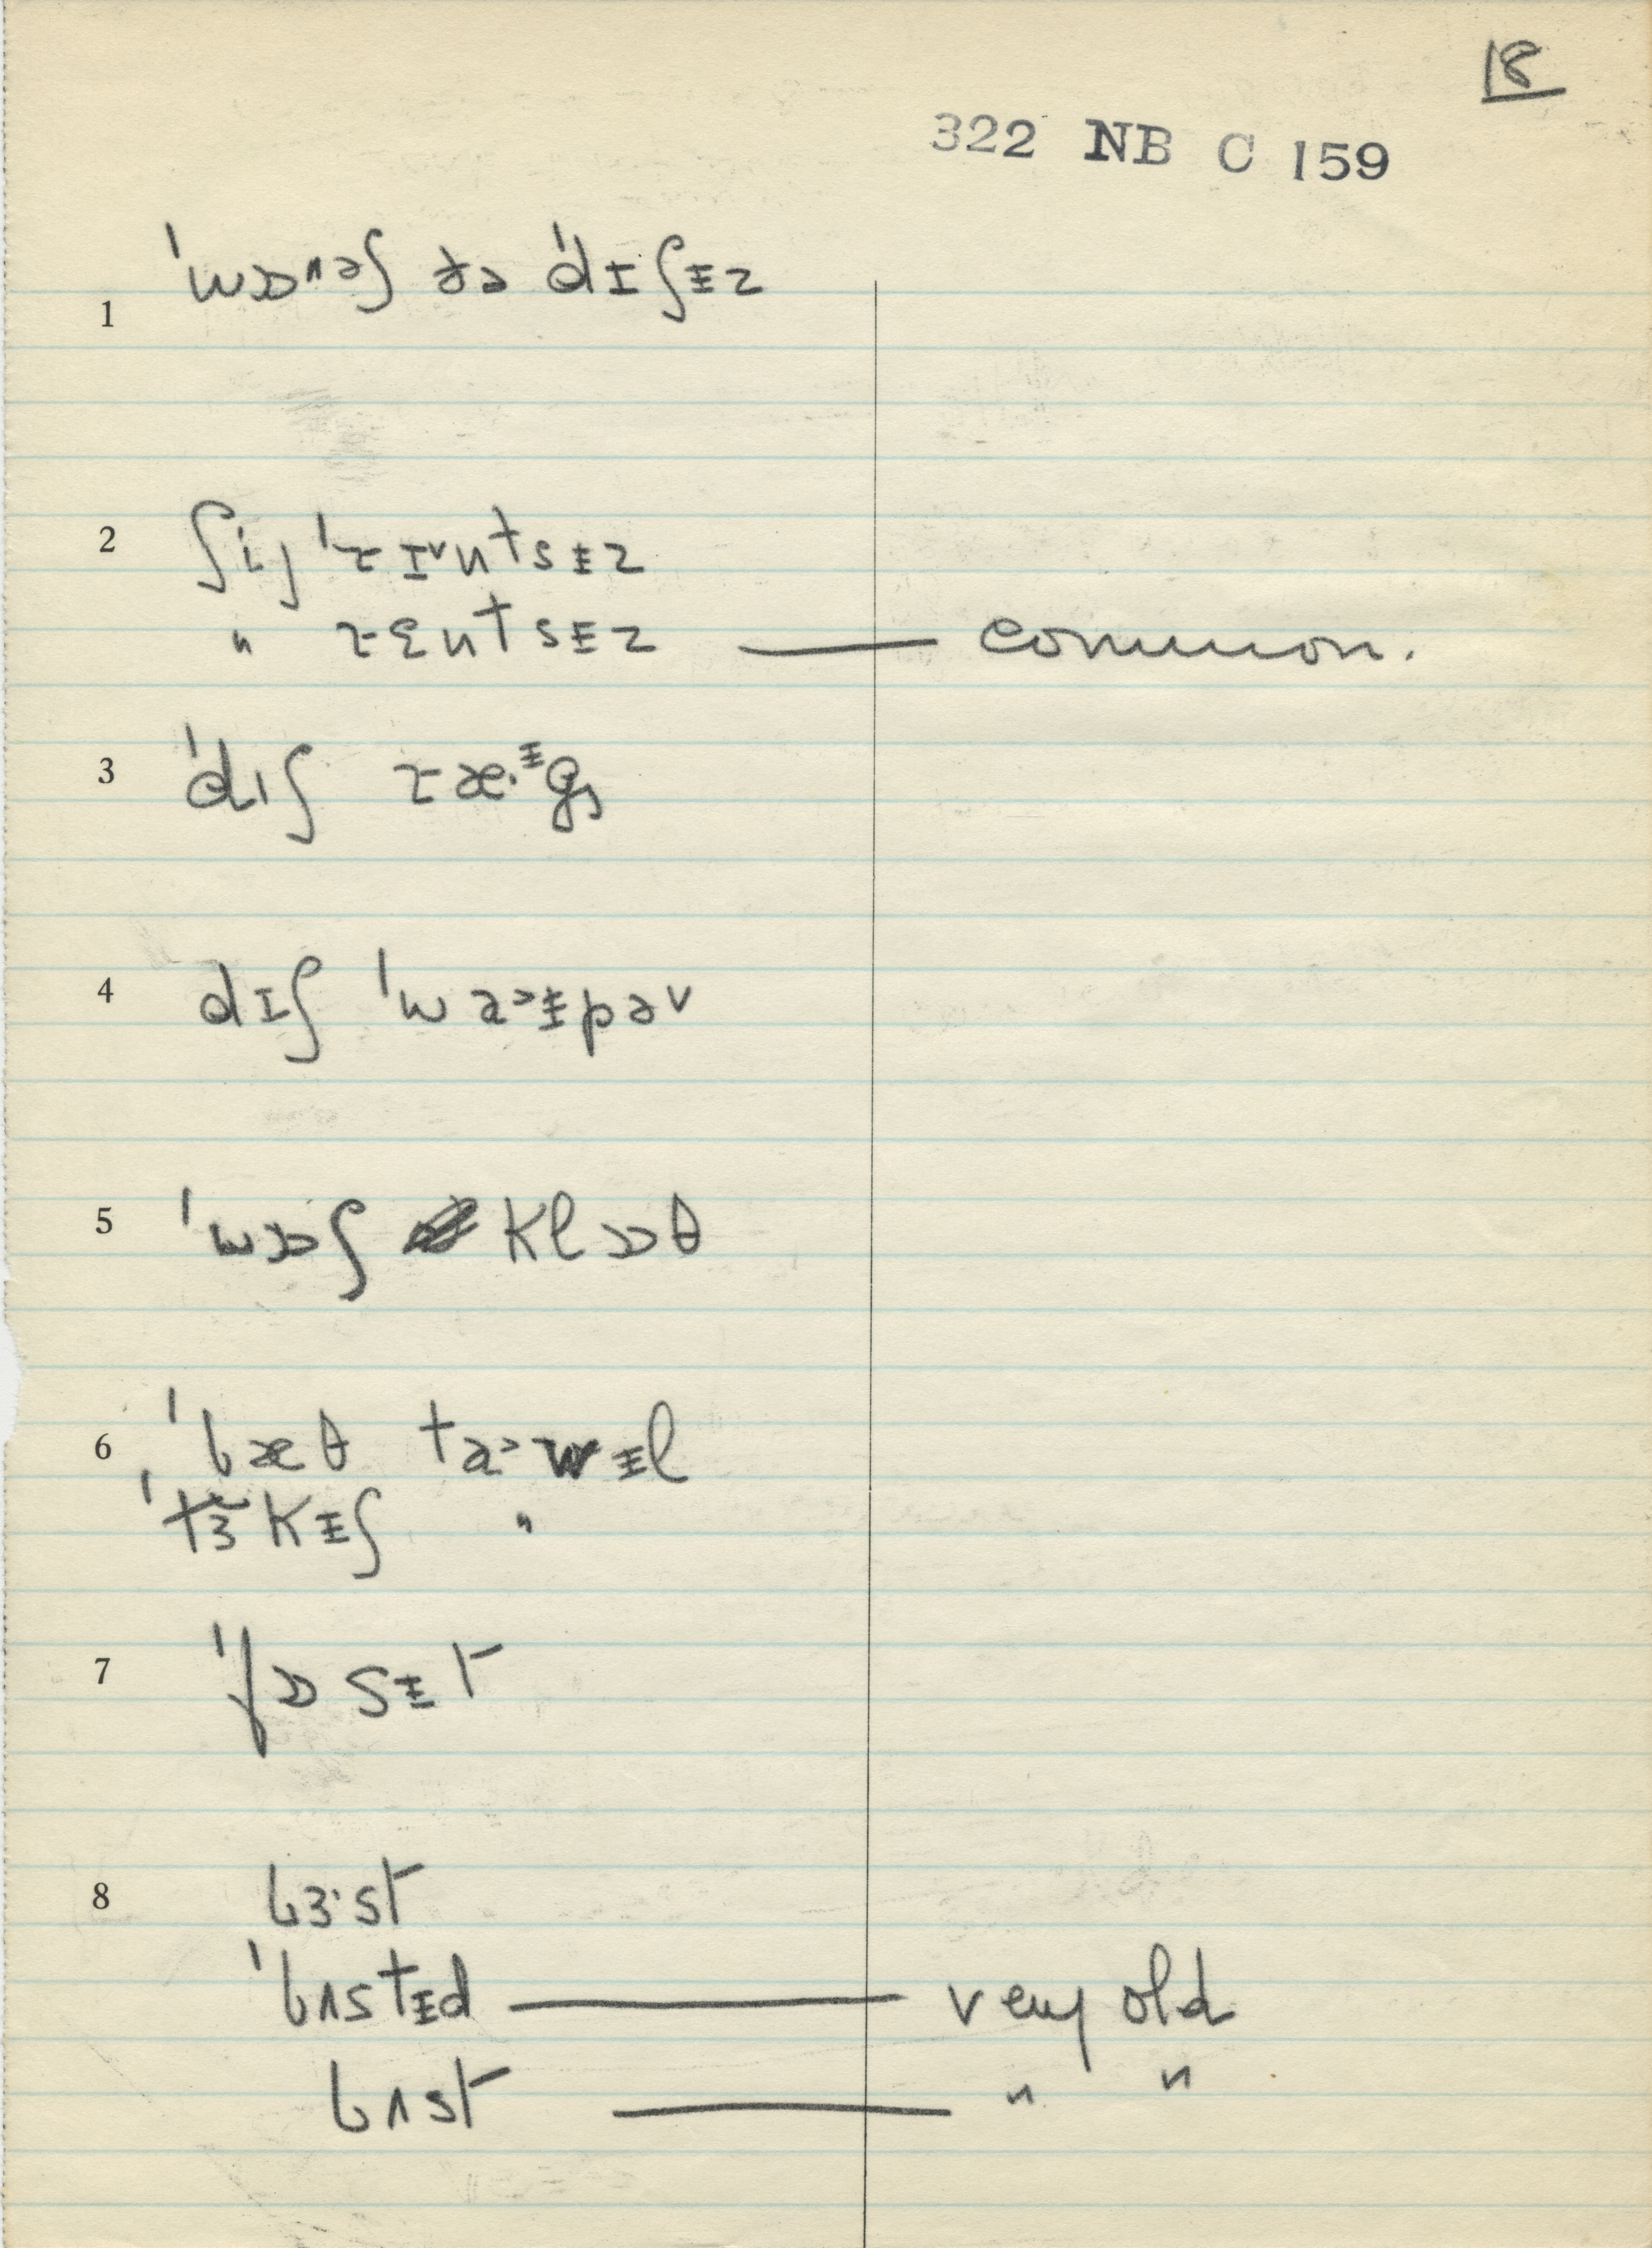 18
322 NB C 159
1 ˈwɒᴧəʃ ðə ˈdɪʃᵻz
2 ʃij ˈɾɪᵛntsᵻz
" ɾɛntsᵻz — common.
3 ˈdɪʃ ɾæ·ᵻgz
4 dɪʃ ˈwaᵊᵻpəv
5 ˈwɒʃ klɒθ
6 ˈbæθ taᵊwᵻl
ˈtɜkᵻʃ "
7 ˈfɒsᵻt
8 bɜ·st
ˈbʌstᵻd — very old
bʌst — " "